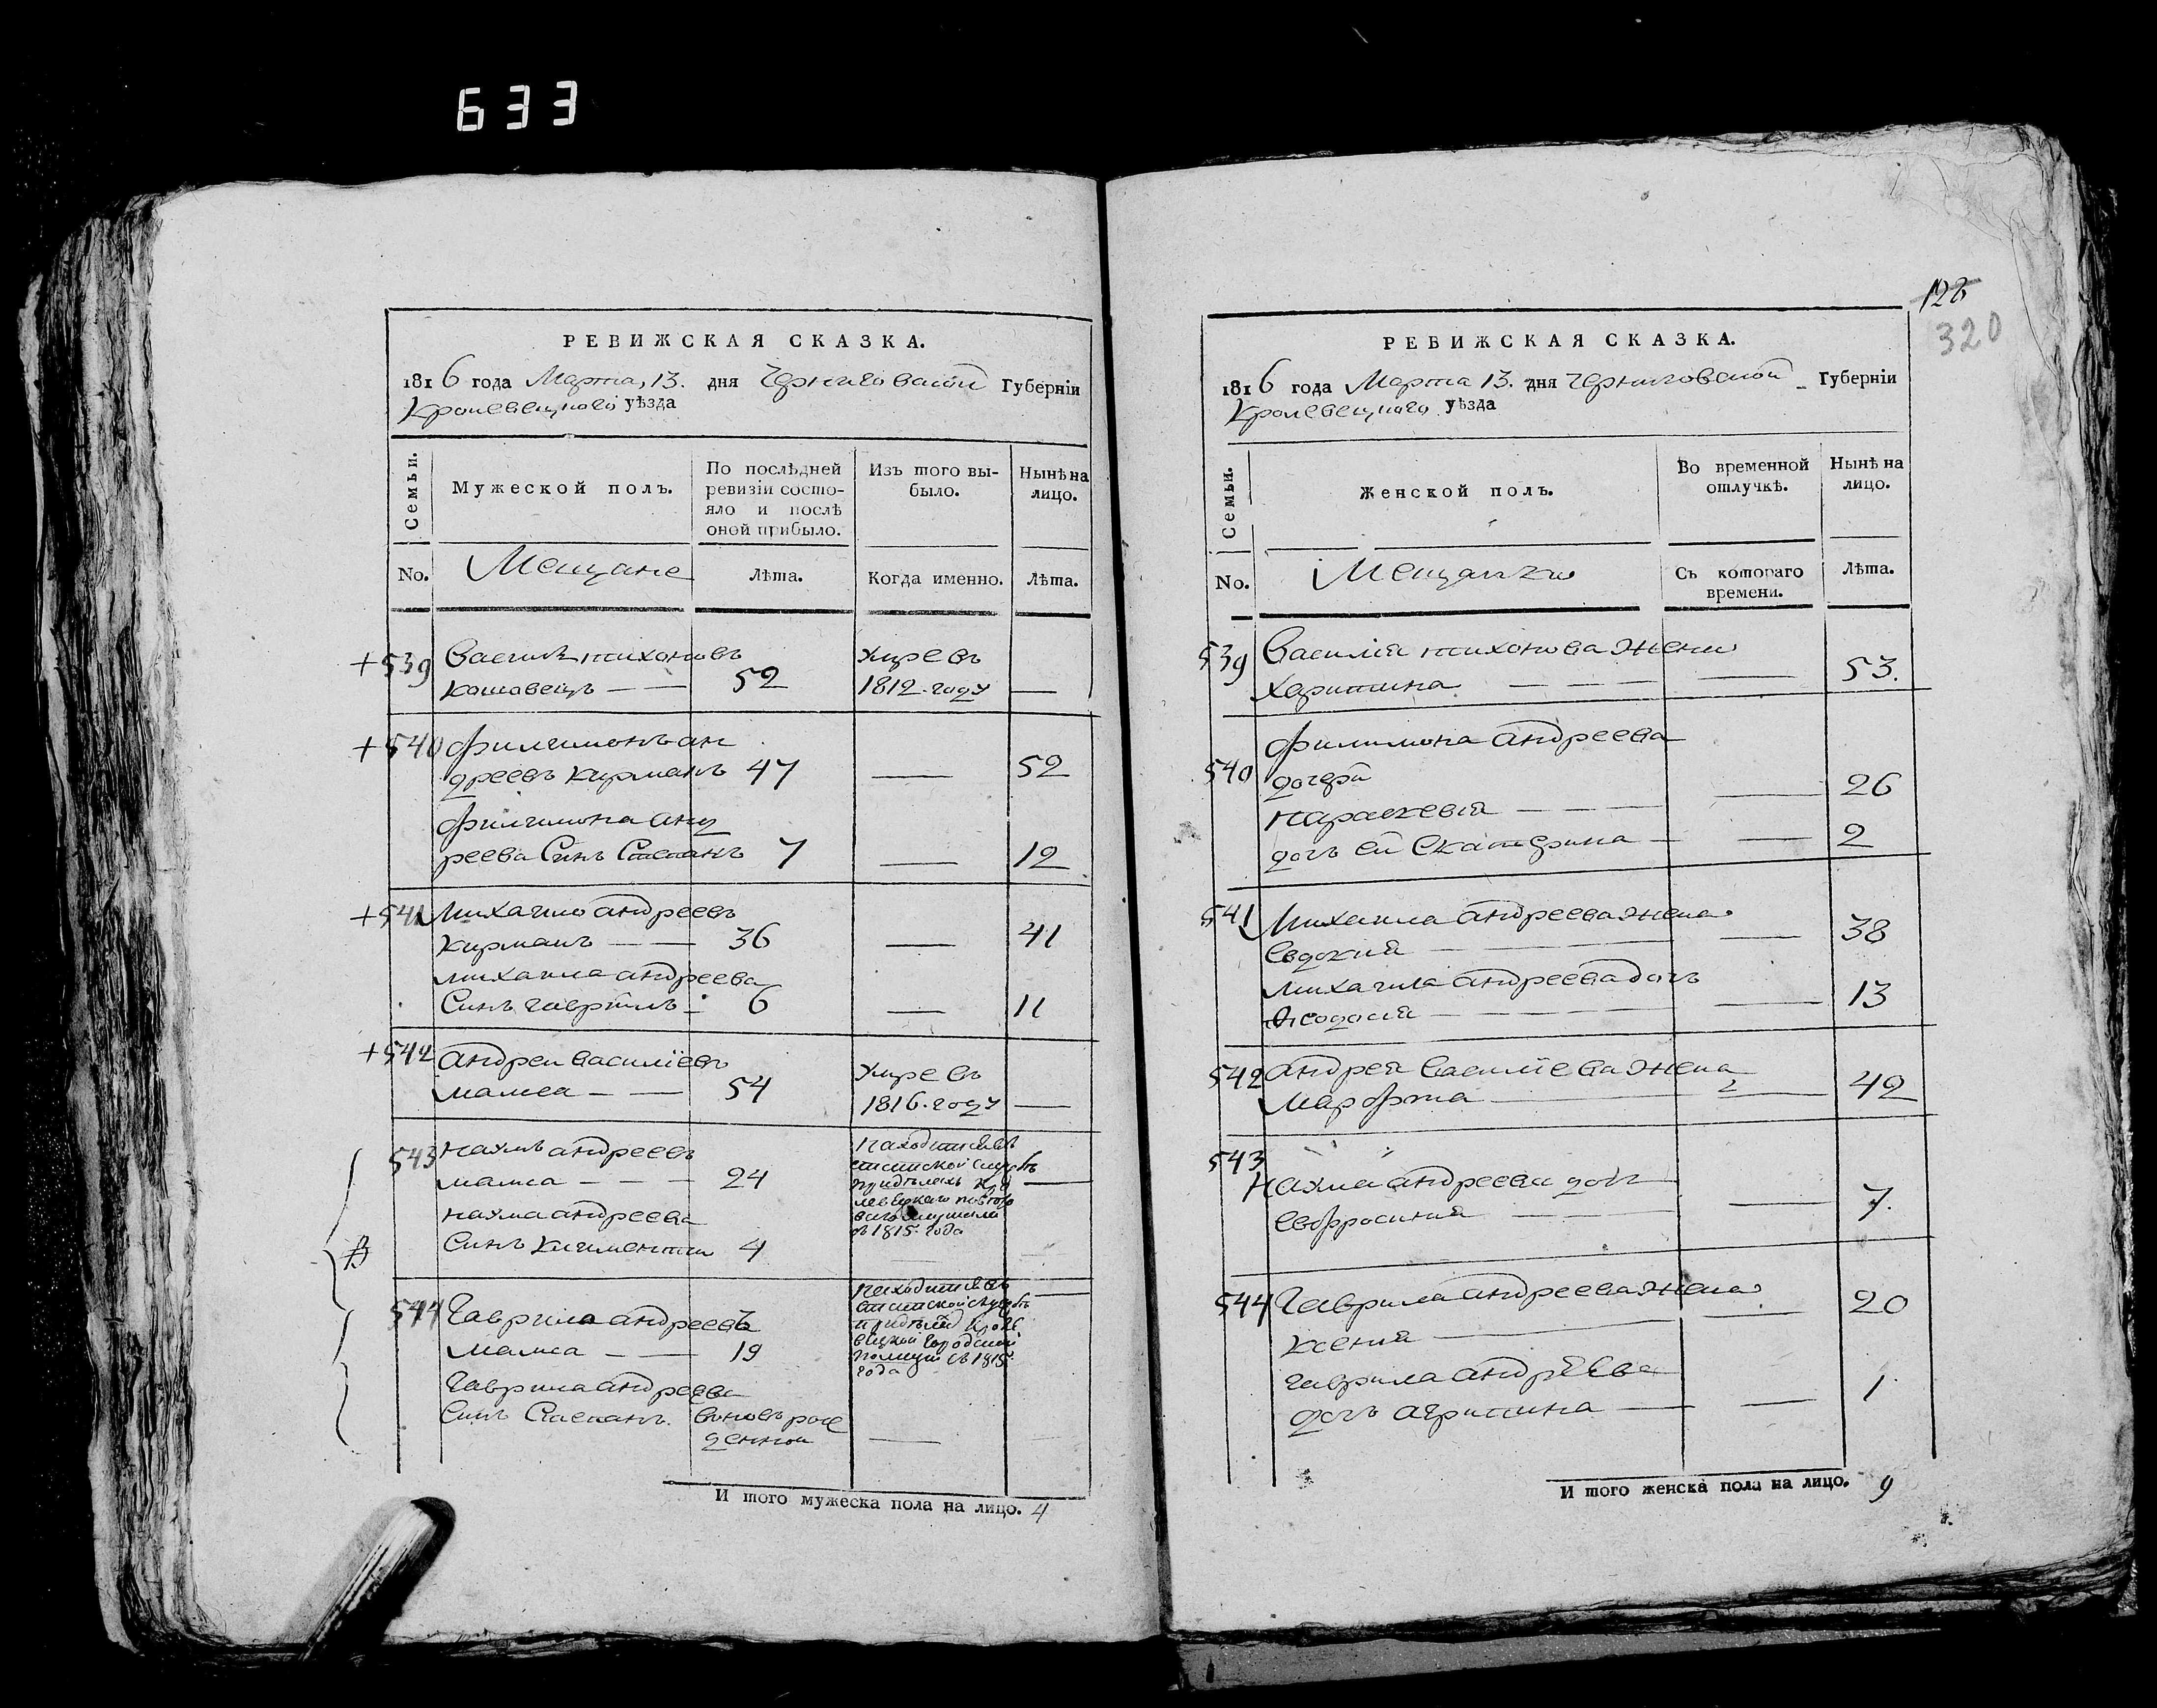 633
РЕВИЖСКАЯ СКАЗКА.
1816 года Марта, 13. дня Черниговской Губерніи
Кролевецкого уѣзда
Семьи.
Мужеской полъ.
По послѣдней
ревизіи состо-
яло и послѣ
оной прибыло.
Изъ того вы-
было.
Нынѣ на
лицо.
No.
Мещане
Лѣта.
Когда именно.
Лѣта.
+539 Василь тихоновъ умре въ
кошовецъ — — 52 1812. году —
+540 филимонъ ан
дреевъ кирманъ 47 — 52
филимона анд
реева Синъ Степанъ 7 — 12
+541 Михаило андреевъ
кирманъ — — 36 — 41
михаила андреева
Синъ гаврилъ — 6 — 11
+542 андреи василіевъ умре въ
мамса — — 54 1816. году —
543 наумъ андреевъ
мамса — — — 24 —
наума андреева
Синъ климентии 4
находится въ
статской службѣ
с 1815. года
544 Гаврило андреевъ
мамса — — 19 —
Гаврила андреева
Синъ Степанъ. вновь рож
денной —
находится въ
статской службѣ
городской
полиции съ 1815.
года
И того мужеска пола на лицо. 4
128
320
РЕВИЖСКАЯ СКАЗКА.
1816 года Марта 13. дня Черниговской Губерніи
Кролевецкого уѣзда
Семьи.
Женской полъ.
Во временной
отлучкѣ.
Нынѣ на
лицо.
No.
Мещанки
Съ котораго
времени.
Лѣта.
539 Василія тихонова жена
Харитина — — — — 53.
540 филимона андреева
дочери
параскевія — — — — 26
дочь ей Екатерина — — 2
541 Михаила андреева жена
Евдокия — — — 38
михаила андреева дочь
Ѳеодосия — — — — 13
542 андрея василіева жена
Марфа — — 42
543
наума андреева дочь
Евфросиния — — — 7.
544 Гаврила андреева жена
ксения — — 20
гаврила андреева
дочъ агрипина — — 1.
И того женска пола на лицо. 9